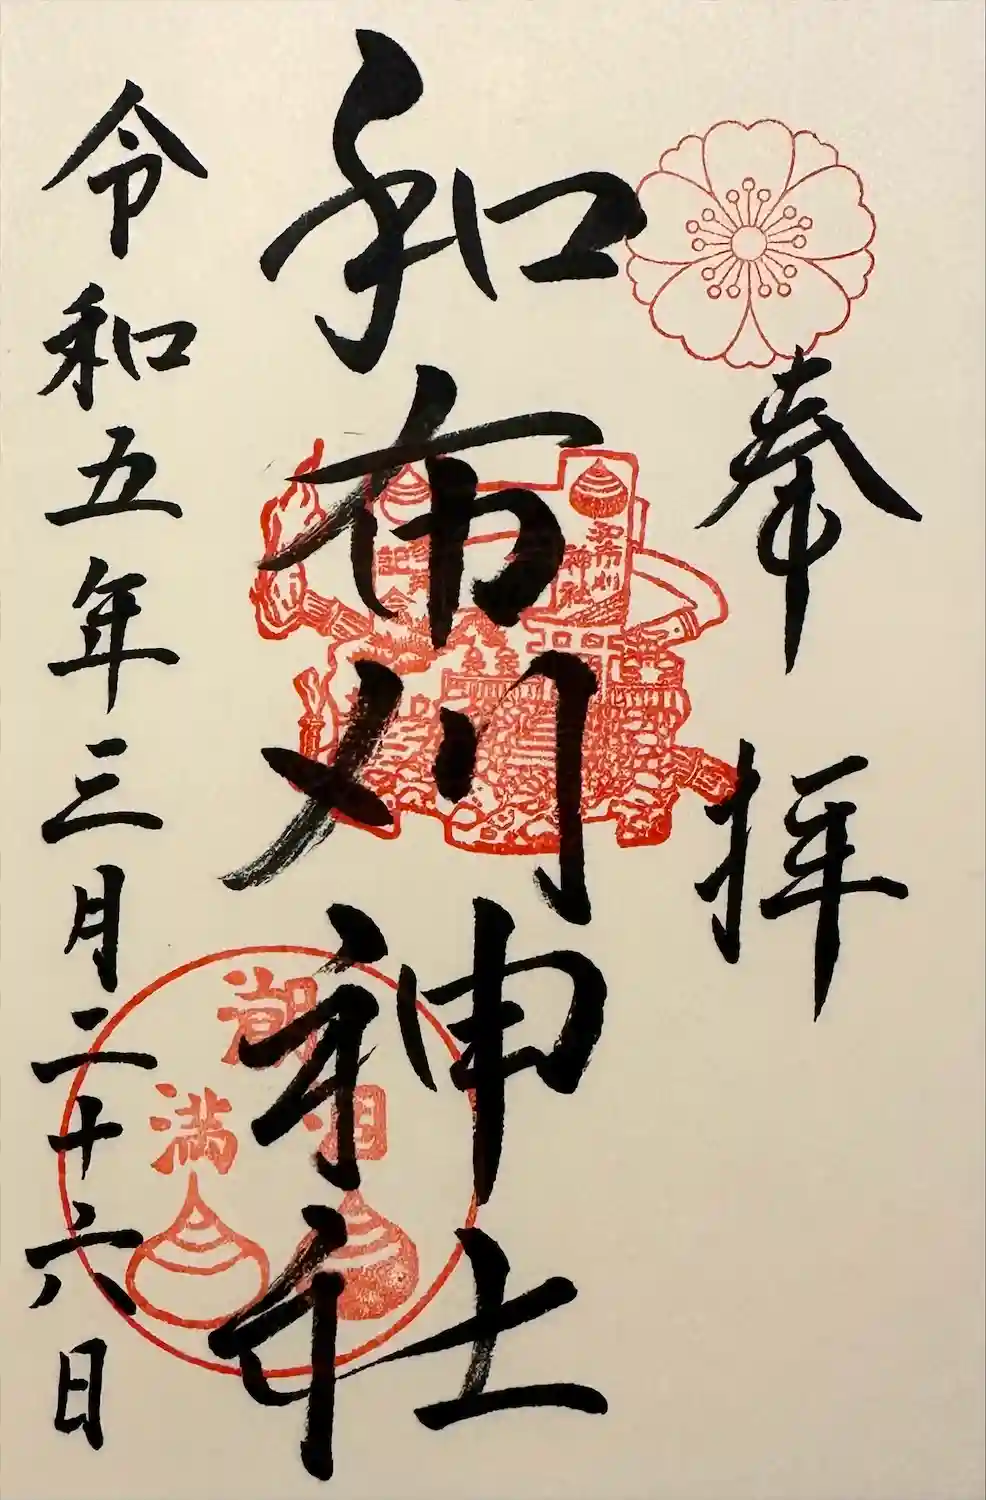 奉拝
和布刈神社
令和五年三月二十六日
和布刈
神社
潮
満